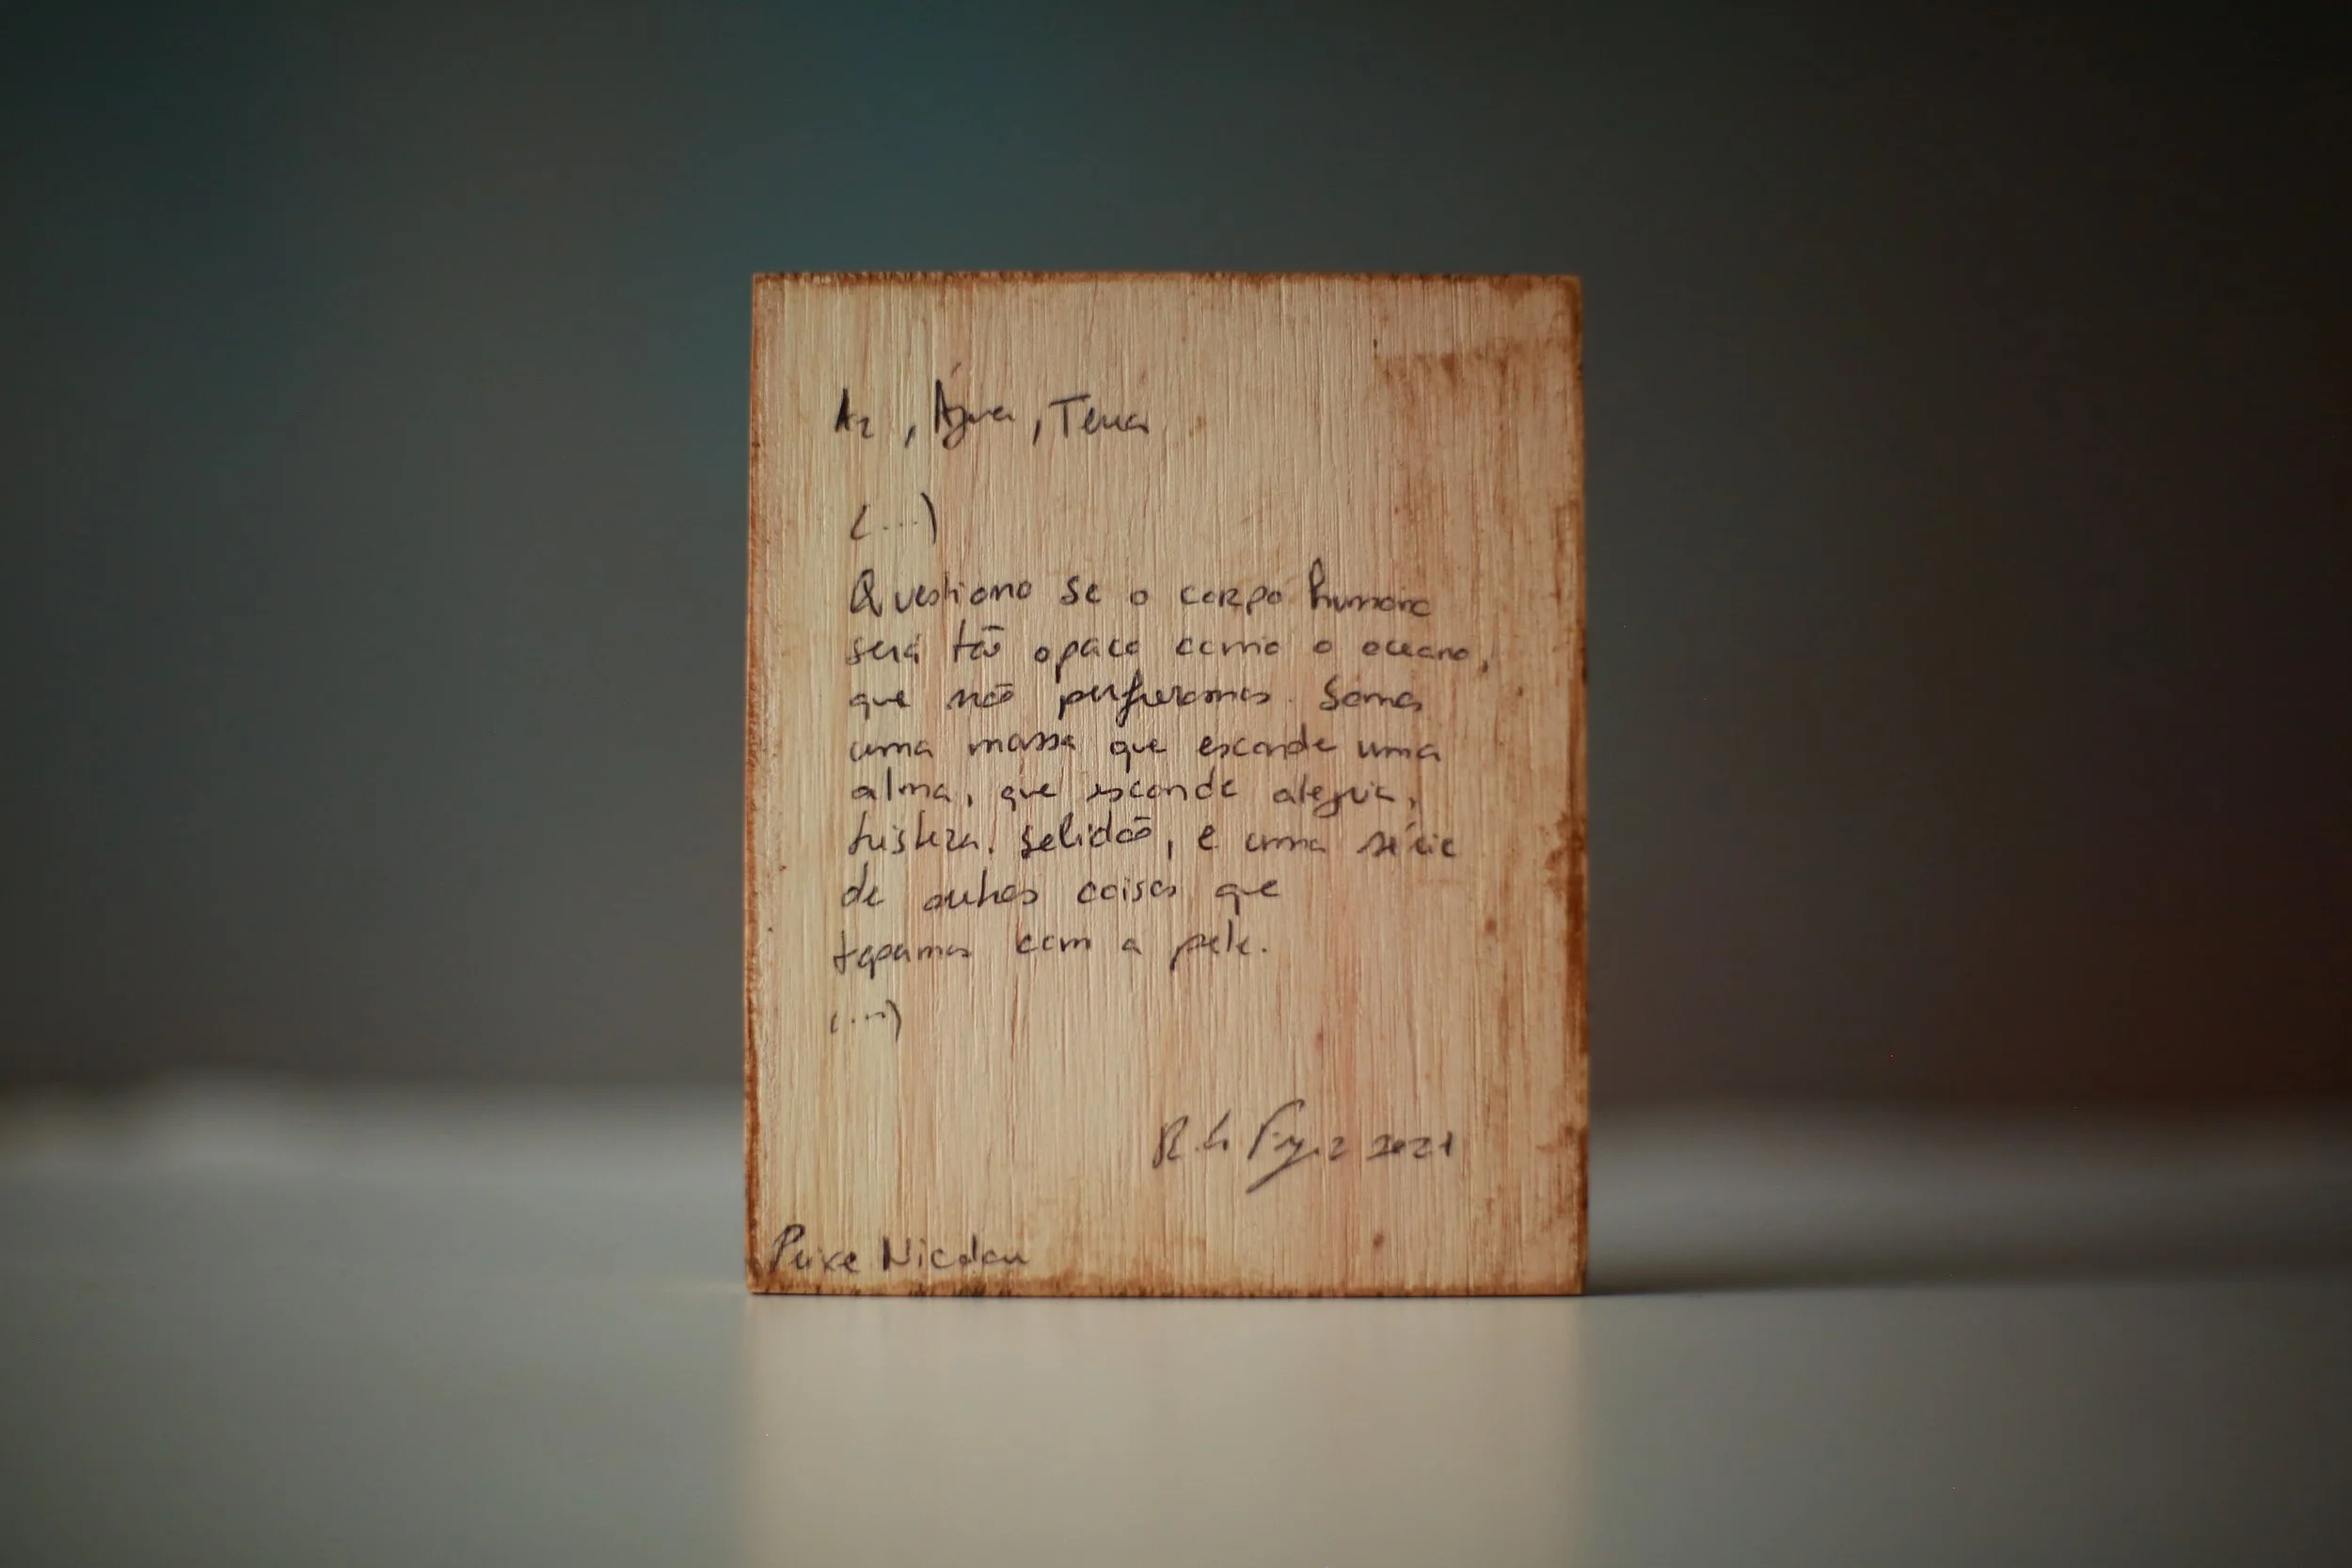 Ar, Água, Terra
(...)
Questiono se o corpo humano
será tão opaco como o oceano,
que não perfuramos. Somos
uma massa que esconde uma
alma, que esconde alegria,
tristeza, solidão, e uma série
de outras coisas que
tapamos com a pele.
(...)
2021
Peixe Nicolau